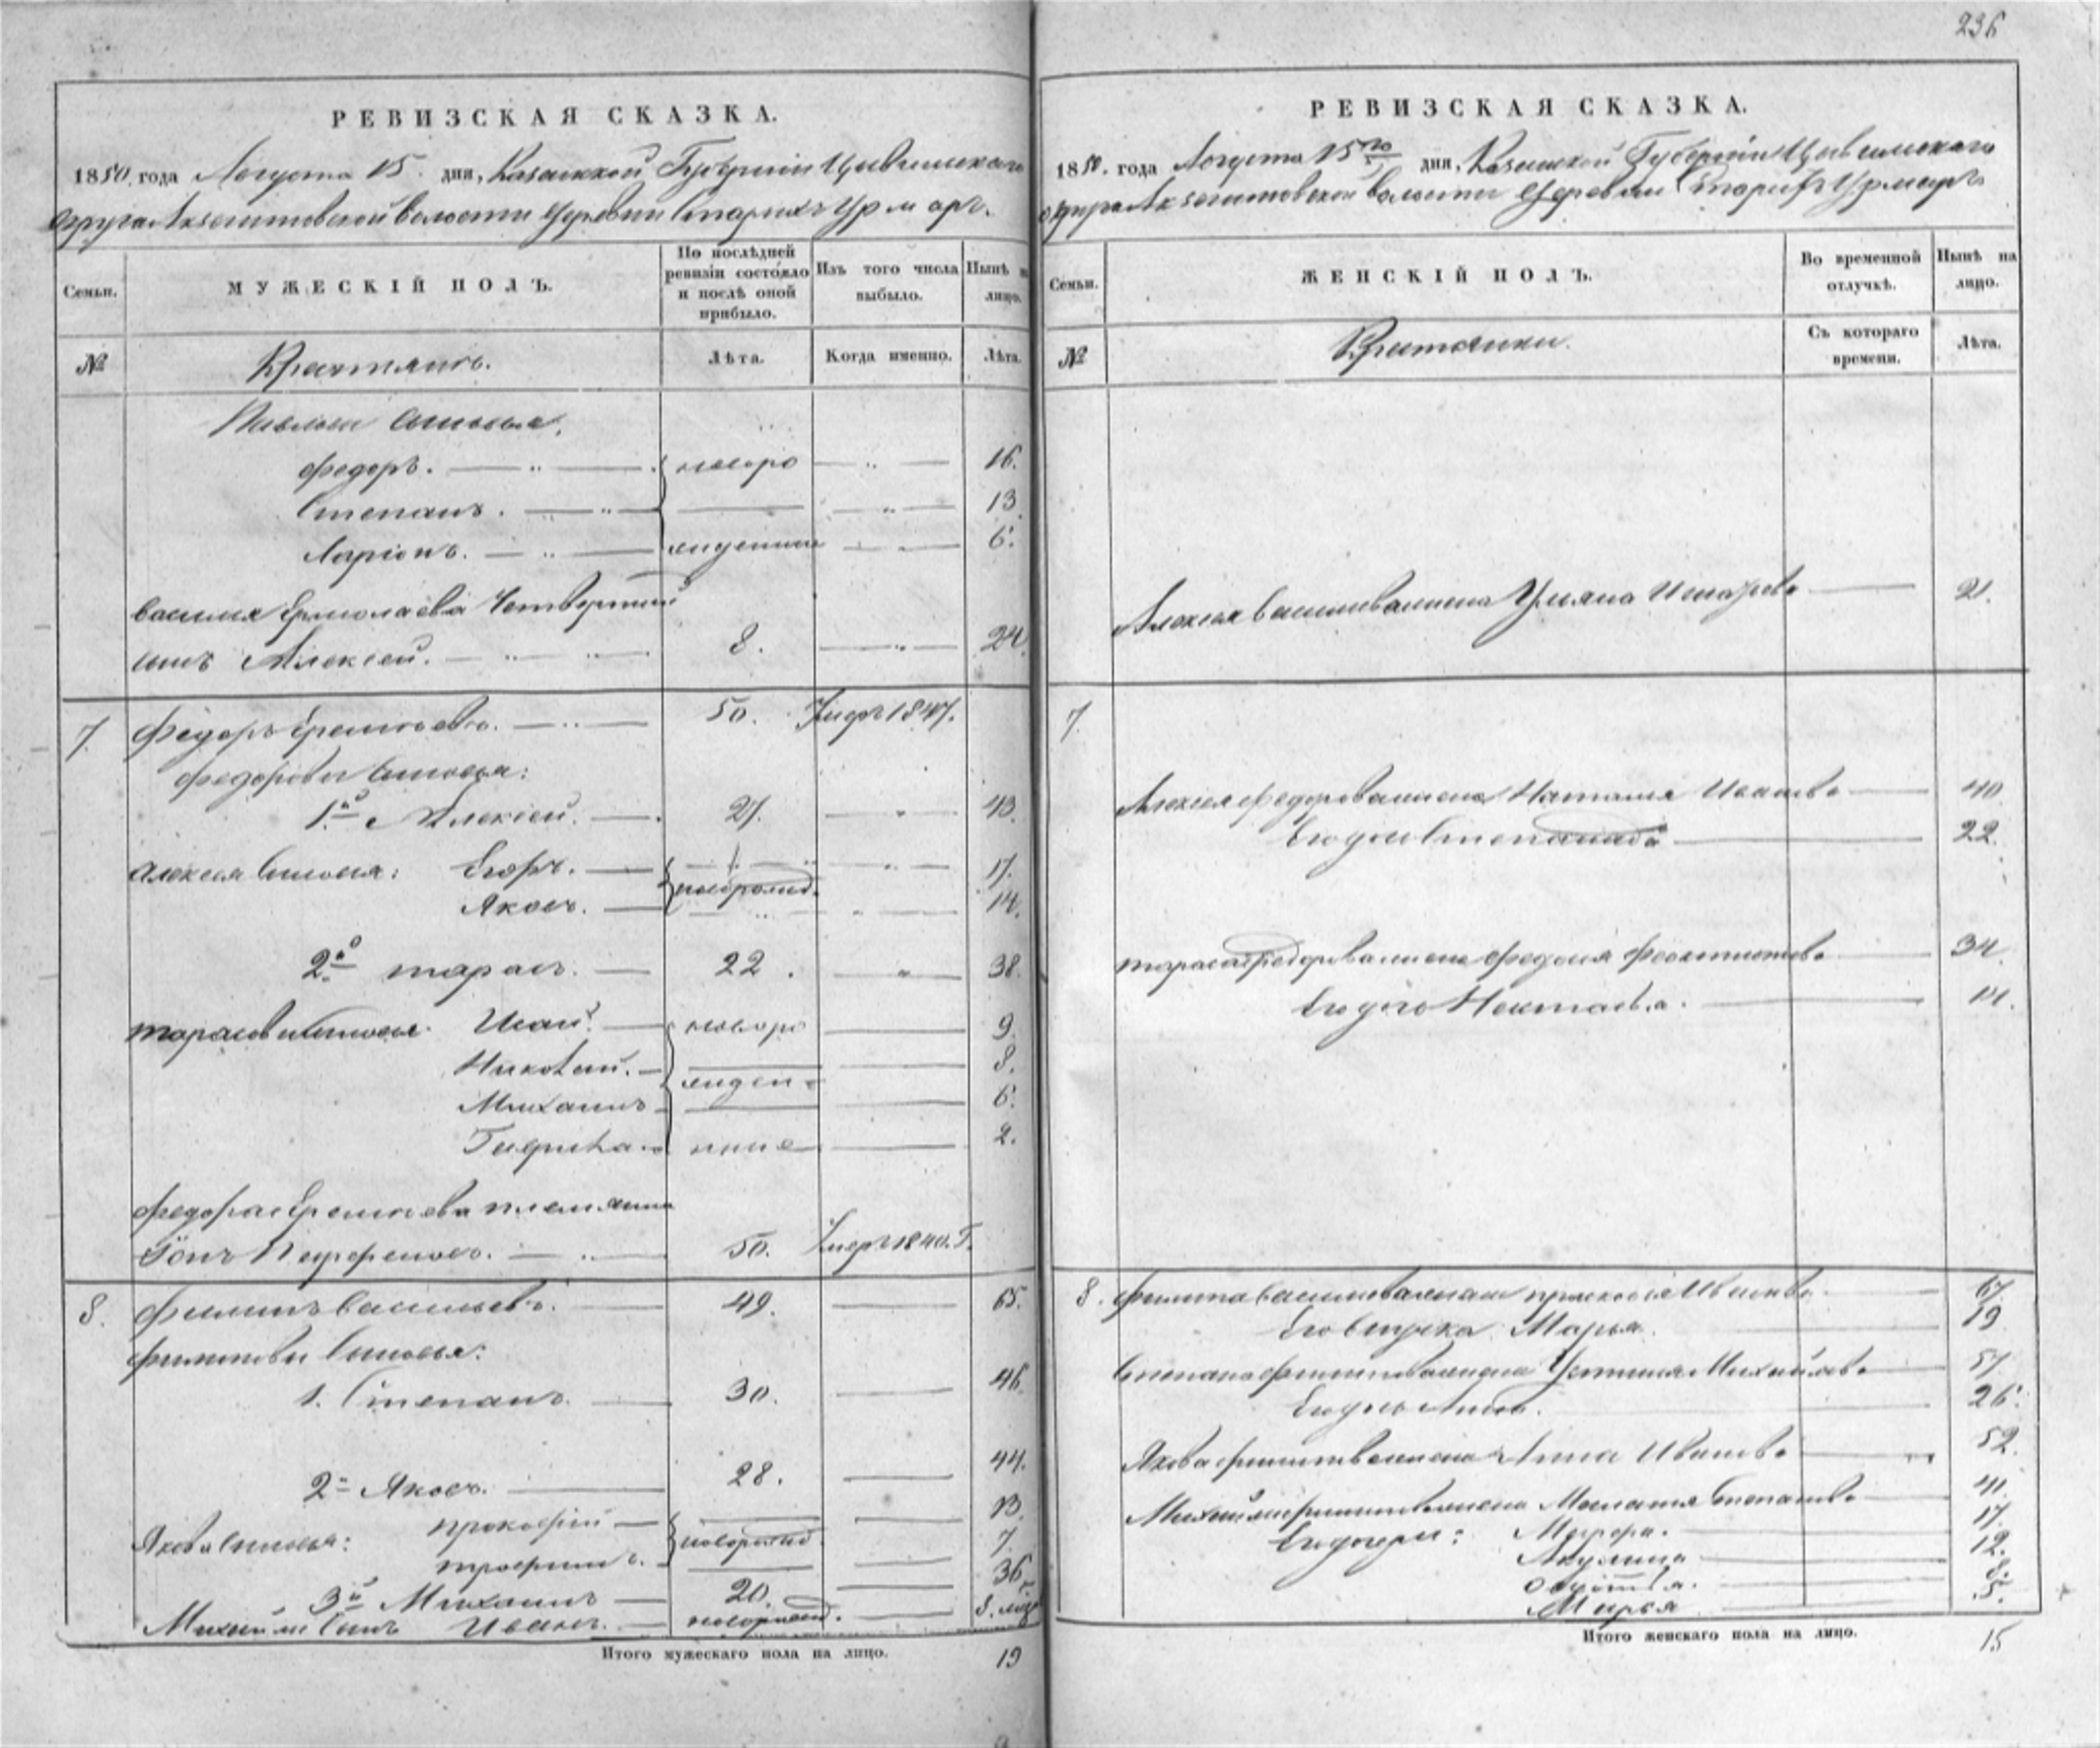 236
РЕВИЗСКАЯ СКАЗКА.
1850 года Августа 15 дня, Казанской Губернии Цивильскаго
округа Акзегитовской волости Деревни Старыхъ Урмаръ.
Семьи.
МУЖЕСКІЙ ПОЛЪ.
По послѣдней ревизіи состояло и послѣ оной прибыло.
Изъ того числа выбыло.
Нынѣ на лицо.
№
Крестьянъ.
Лѣта.
Когда именно.
Лѣта.
Павловы сыновья,
Федоръ. новоро 16.
Степанъ. 13.
Ларіонъ. жденные 6.
Василья Ермолаева четвертый
сынъ Алексей. 8. 24.
7. Федоръ Еремѣевъ. 50. Умеръ 1847.
Федоровы сыновья:
1й Алексей. 27. 43.
Алексея сыновья: Егоръ. 17.
новорожд.
Яковъ. 14.
2й Тарасъ. 22. 38.
Тарасовы сыновья. Исай. новоро 9.
Николай. 8.
жден
Михаилъ 6.
Гаврила. ные 2.
Федора Еремѣева племянни
50. Умеръ 1840. Г.
8. Филипъ Васильевъ. 49. 65.
Филиповы сыновья:
1. Степанъ. 30. 46.
2й Яковъ. 28. 44.
Якова сыновья: Прокофій 13.
новорожд.
Трофимъ. 7.
3й Михаилъ 20. 36.
Михайлы сынъ Иванъ. новорожд. 8.
Итого мужескаго пола на лицо. 19
РЕВИЗСКАЯ СКАЗКА.
1850. года Августа 15го дня, Казанской Губерніи Цивильскаго
округа Акзегитовской волости Деревни Старыхъ Урмаръ
Семьи.
ЖЕНСКІЙ ПОЛЪ.
Во временной отлучкѣ.
Нынѣ на лицо.
№
Крестьянки.
Съ котораго времени.
Лѣта.
Алексея Васильева жена Ульяна 21.
7.
Алексея Федорова жена Наталья Иванова 40.
Его дочь Степанида 22.
Тараса Федорова жена Федосья Феоктистова 34.
Его дочь Настасья. 11.
8. Филипа Васильева жена Прасковья Иванова. 67.
Его внучка Марья. 19
Степана Филипова жена Устинья Михайлова 57
Его дочь Анна. 26.
Якова Филипова жена Анна Иванова 52.
Михайлы Филипова жена Маланья Степанова 41.
Его дочери: Марфа. 17.
Акулина 12.
8.
Марья 5.
Итого женскаго пола на лицо. 15